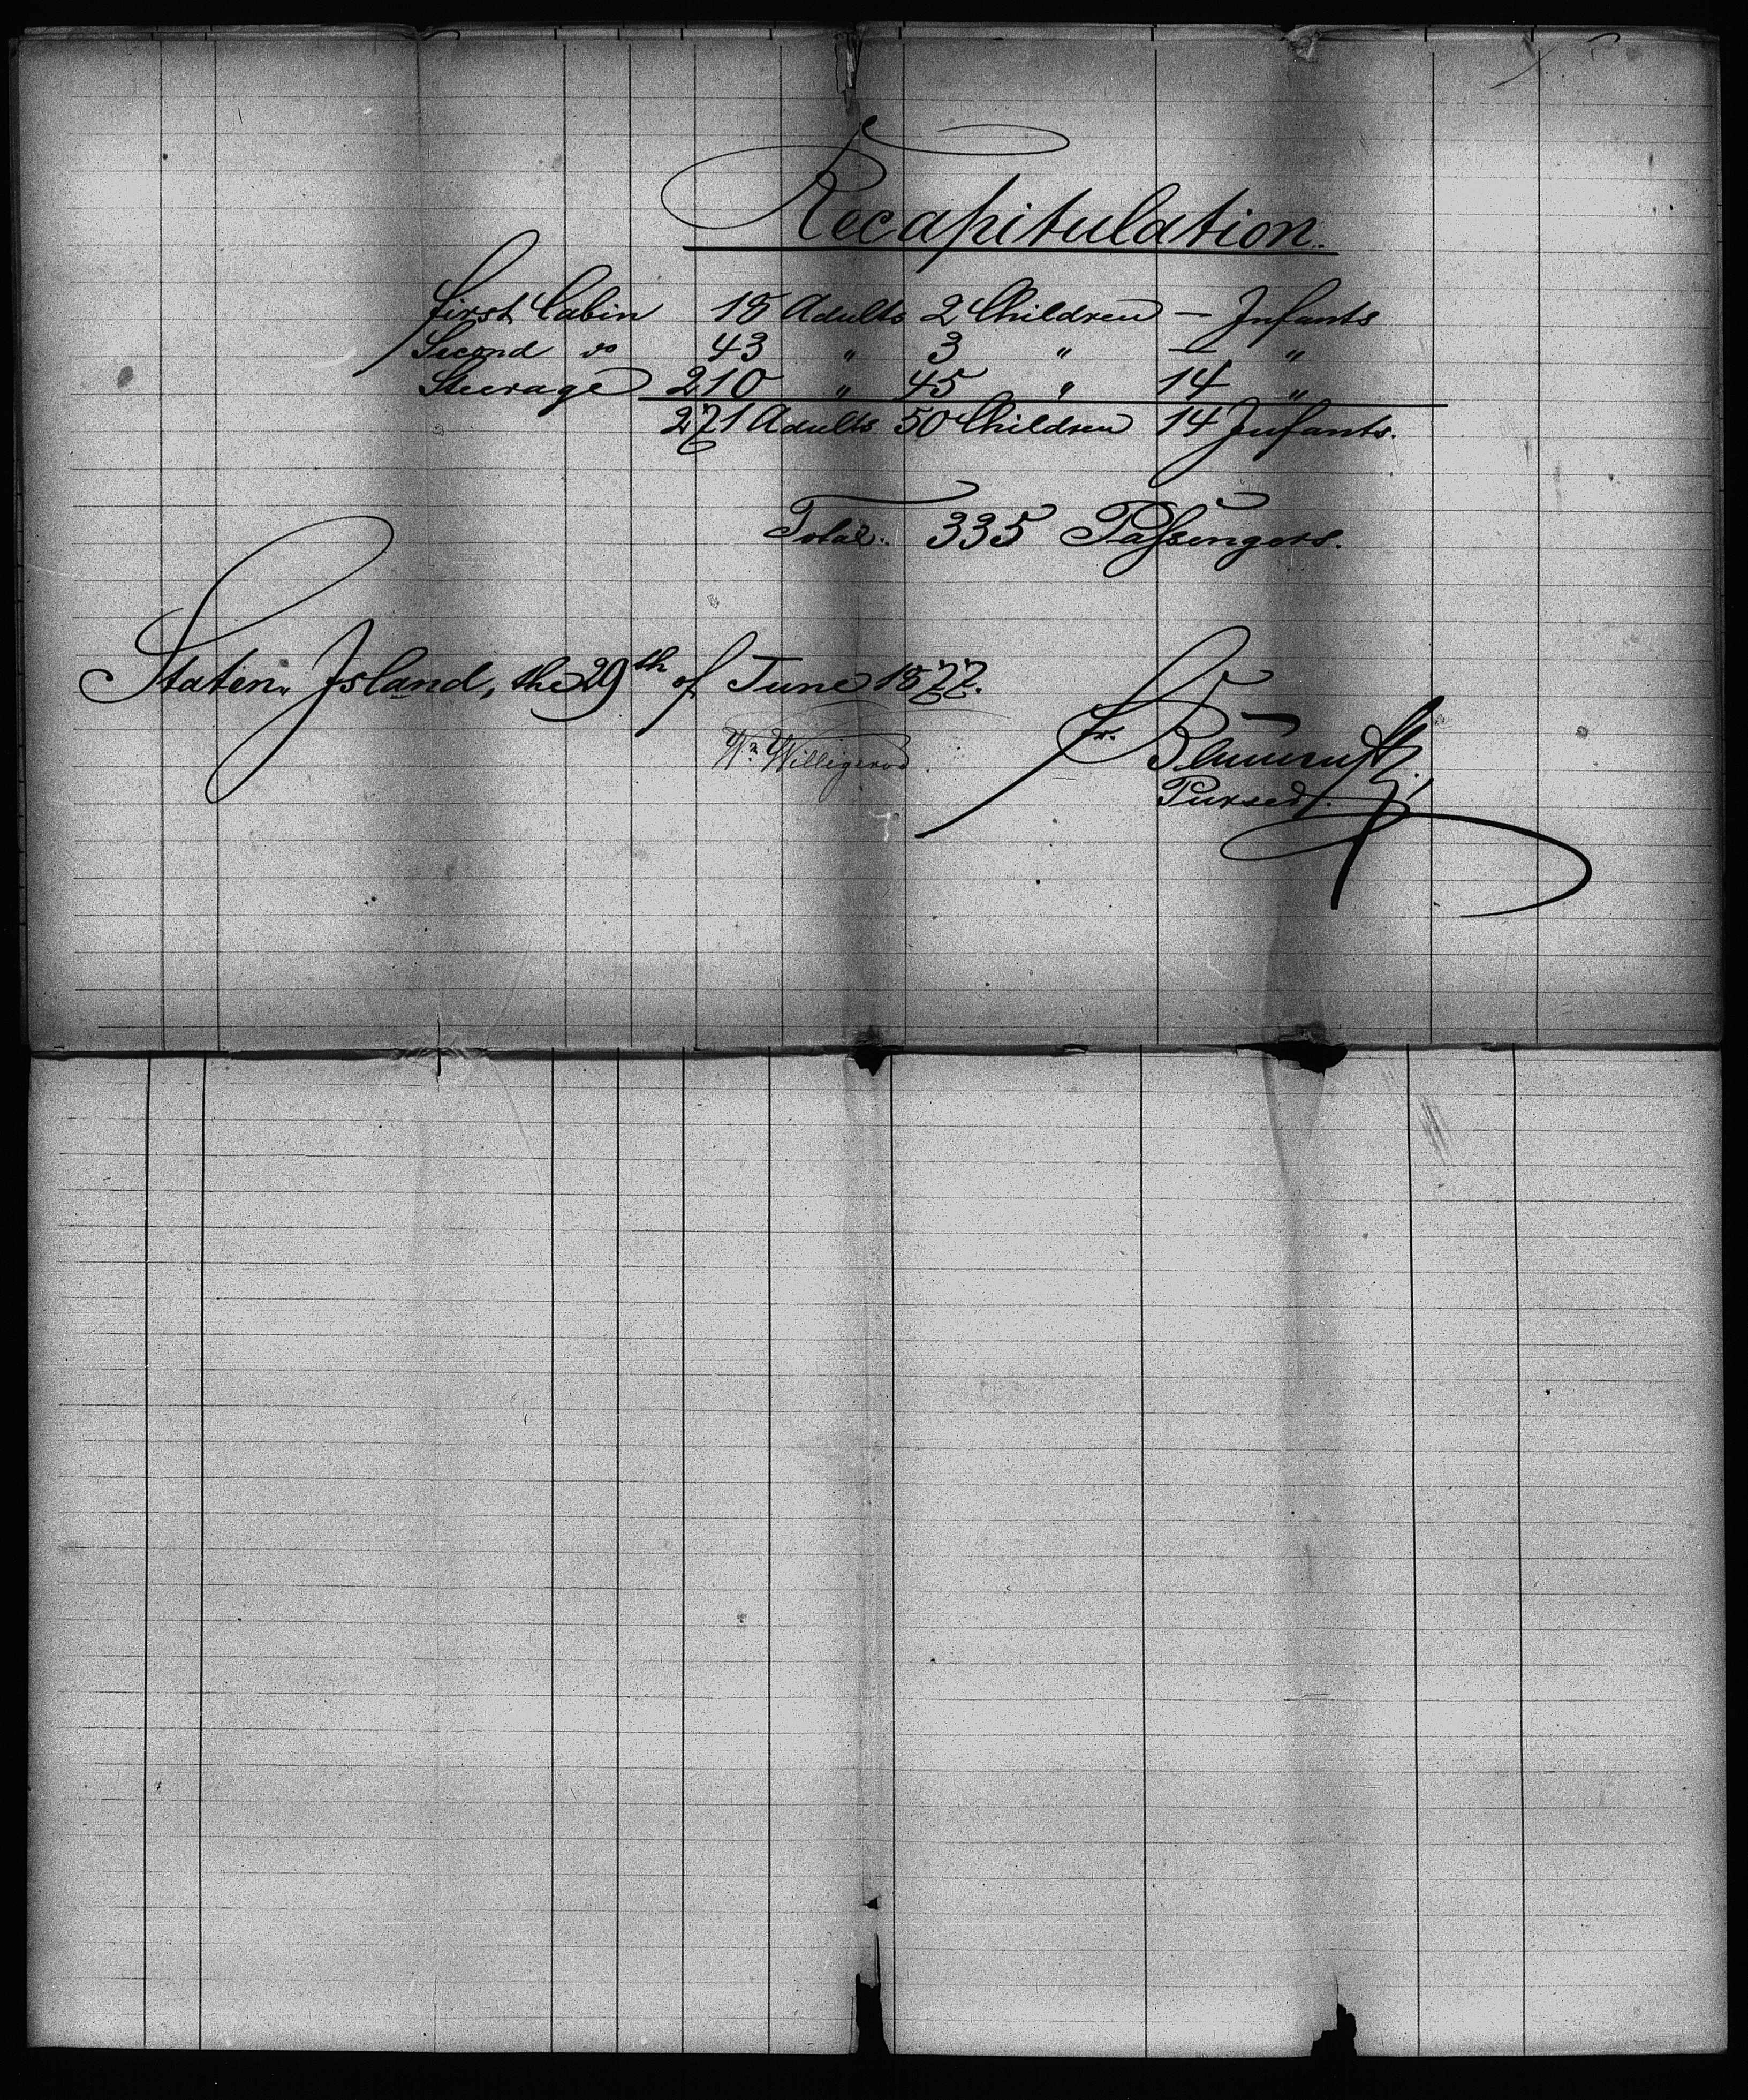 Recapitulation.
First Cabin 18 Adults 2 Children — Infants
Second do 43 " 3 " — "
Steerage 210 " 45 " 14 "
271 Adults 50 Children 14 Infants.
Total: 335 Passengers.
Staten Island, the 29th of June 1877.
Wm Willigerod.
Fr.
Purser.